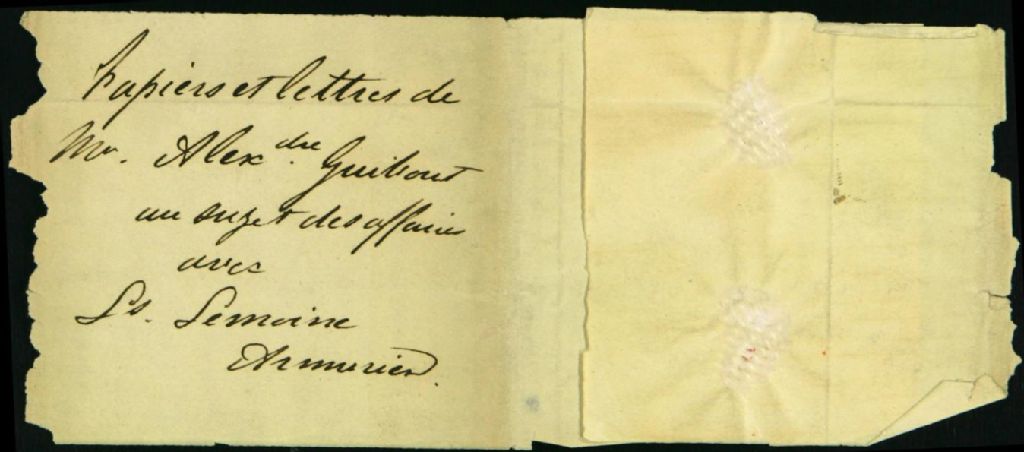 Papiers et lettres de
Mr. Alexdre Guibout
au sujet des affaires
avec
Ls. Lemoine
Armurier.